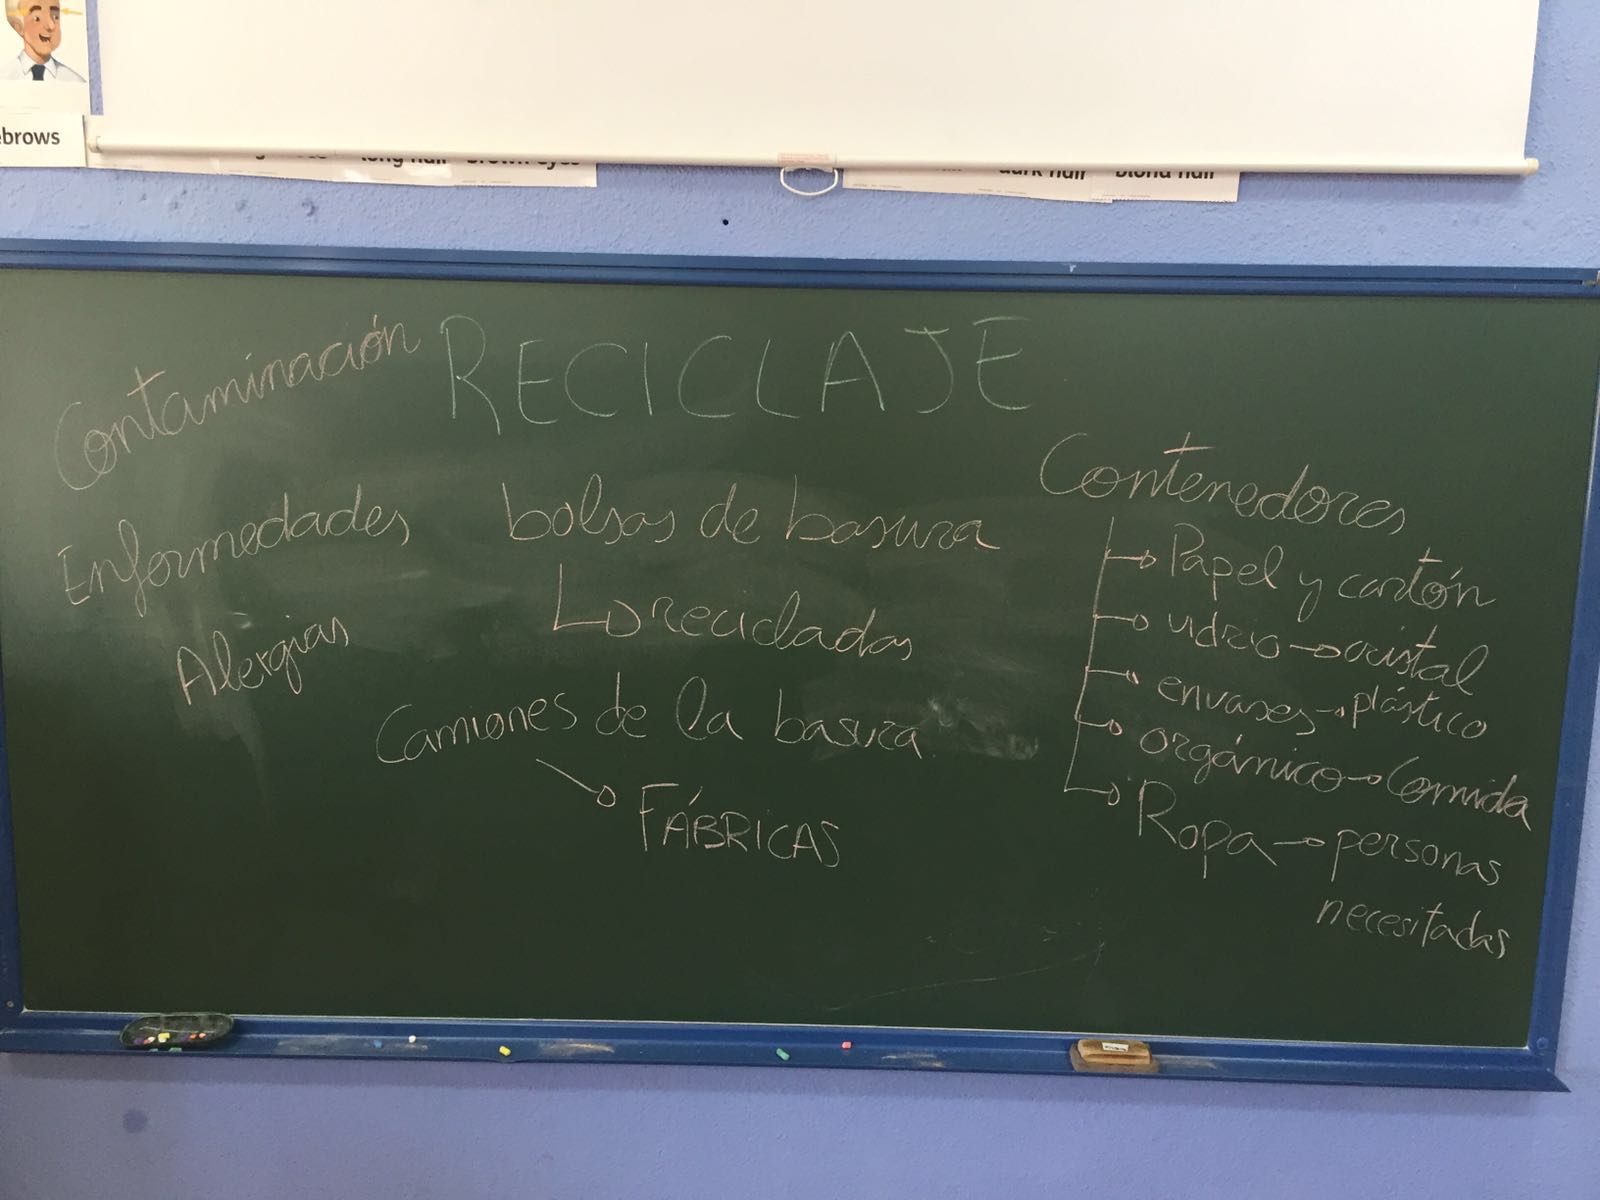 ebrows
long hair brown eyes
dark hair blond hair
RECICLAJE
Contaminación
Enfermedades
Alergias
bolsas de basura
recicladas
Camiones de la basura
FÁBRICAS
Contenedores
Papel y cartón
vidrio → cristal
envases → plástico
orgánico → Comida
Ropa → personas
necesitadas